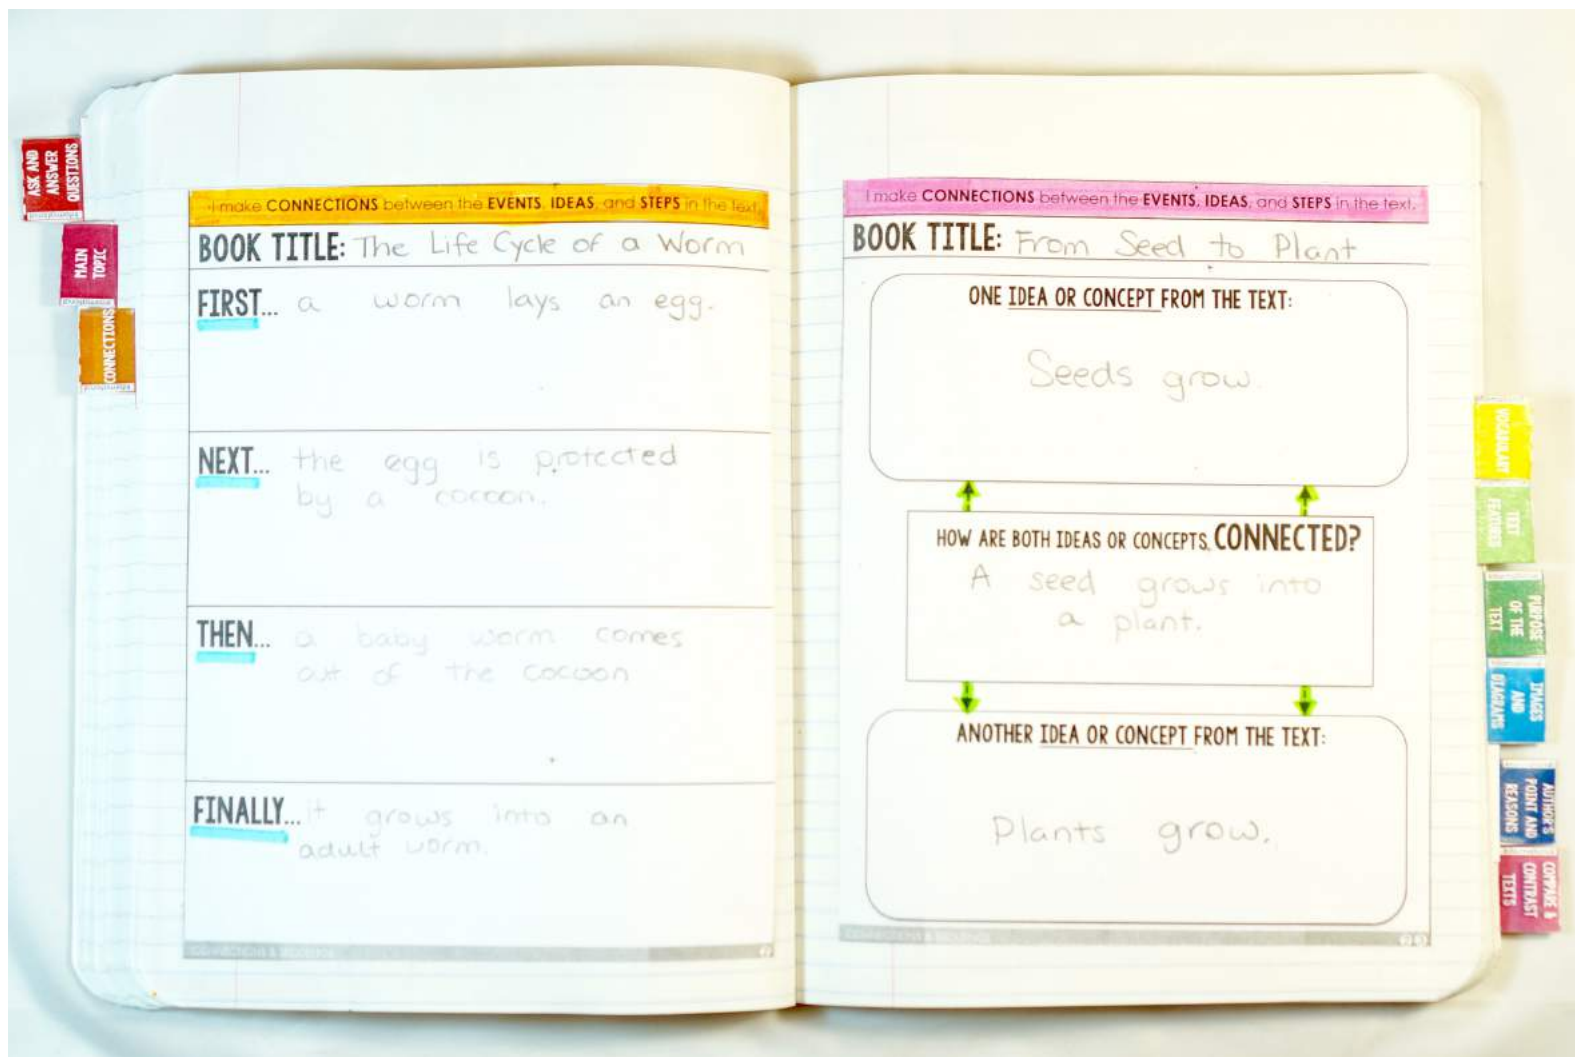 ASK AND
ANSWER
QUESTIONS
MAIN
TOPIC
CONNECTIONS
I make CONNECTIONS between the EVENTS, IDEAS, and STEPS in the text.
BOOK TITLE: The Life Cycle of a Worm
FIRST... a worm lays an egg.
NEXT... the egg is protected
by a cocoon.
THEN... a baby worm comes
out of the cocoon
FINALLY... it grows into an
adult worm.
I make CONNECTIONS between the EVENTS, IDEAS, and STEPS in the text.
BOOK TITLE: From Seed to Plant
ONE IDEA OR CONCEPT FROM THE TEXT:
Seeds grow.
HOW ARE BOTH IDEAS OR CONCEPTS CONNECTED?
A seed grows into
a plant.
ANOTHER IDEA OR CONCEPT FROM THE TEXT:
Plants grow.
VOCABULARY
TEXT
FEATURES
PURPOSE
OF THE
TEXT
IMAGES
AND
DIAGRAMS
AUTHOR'S
POINT AND
REASONS
COMPARE &
CONTRAST
TEXTS